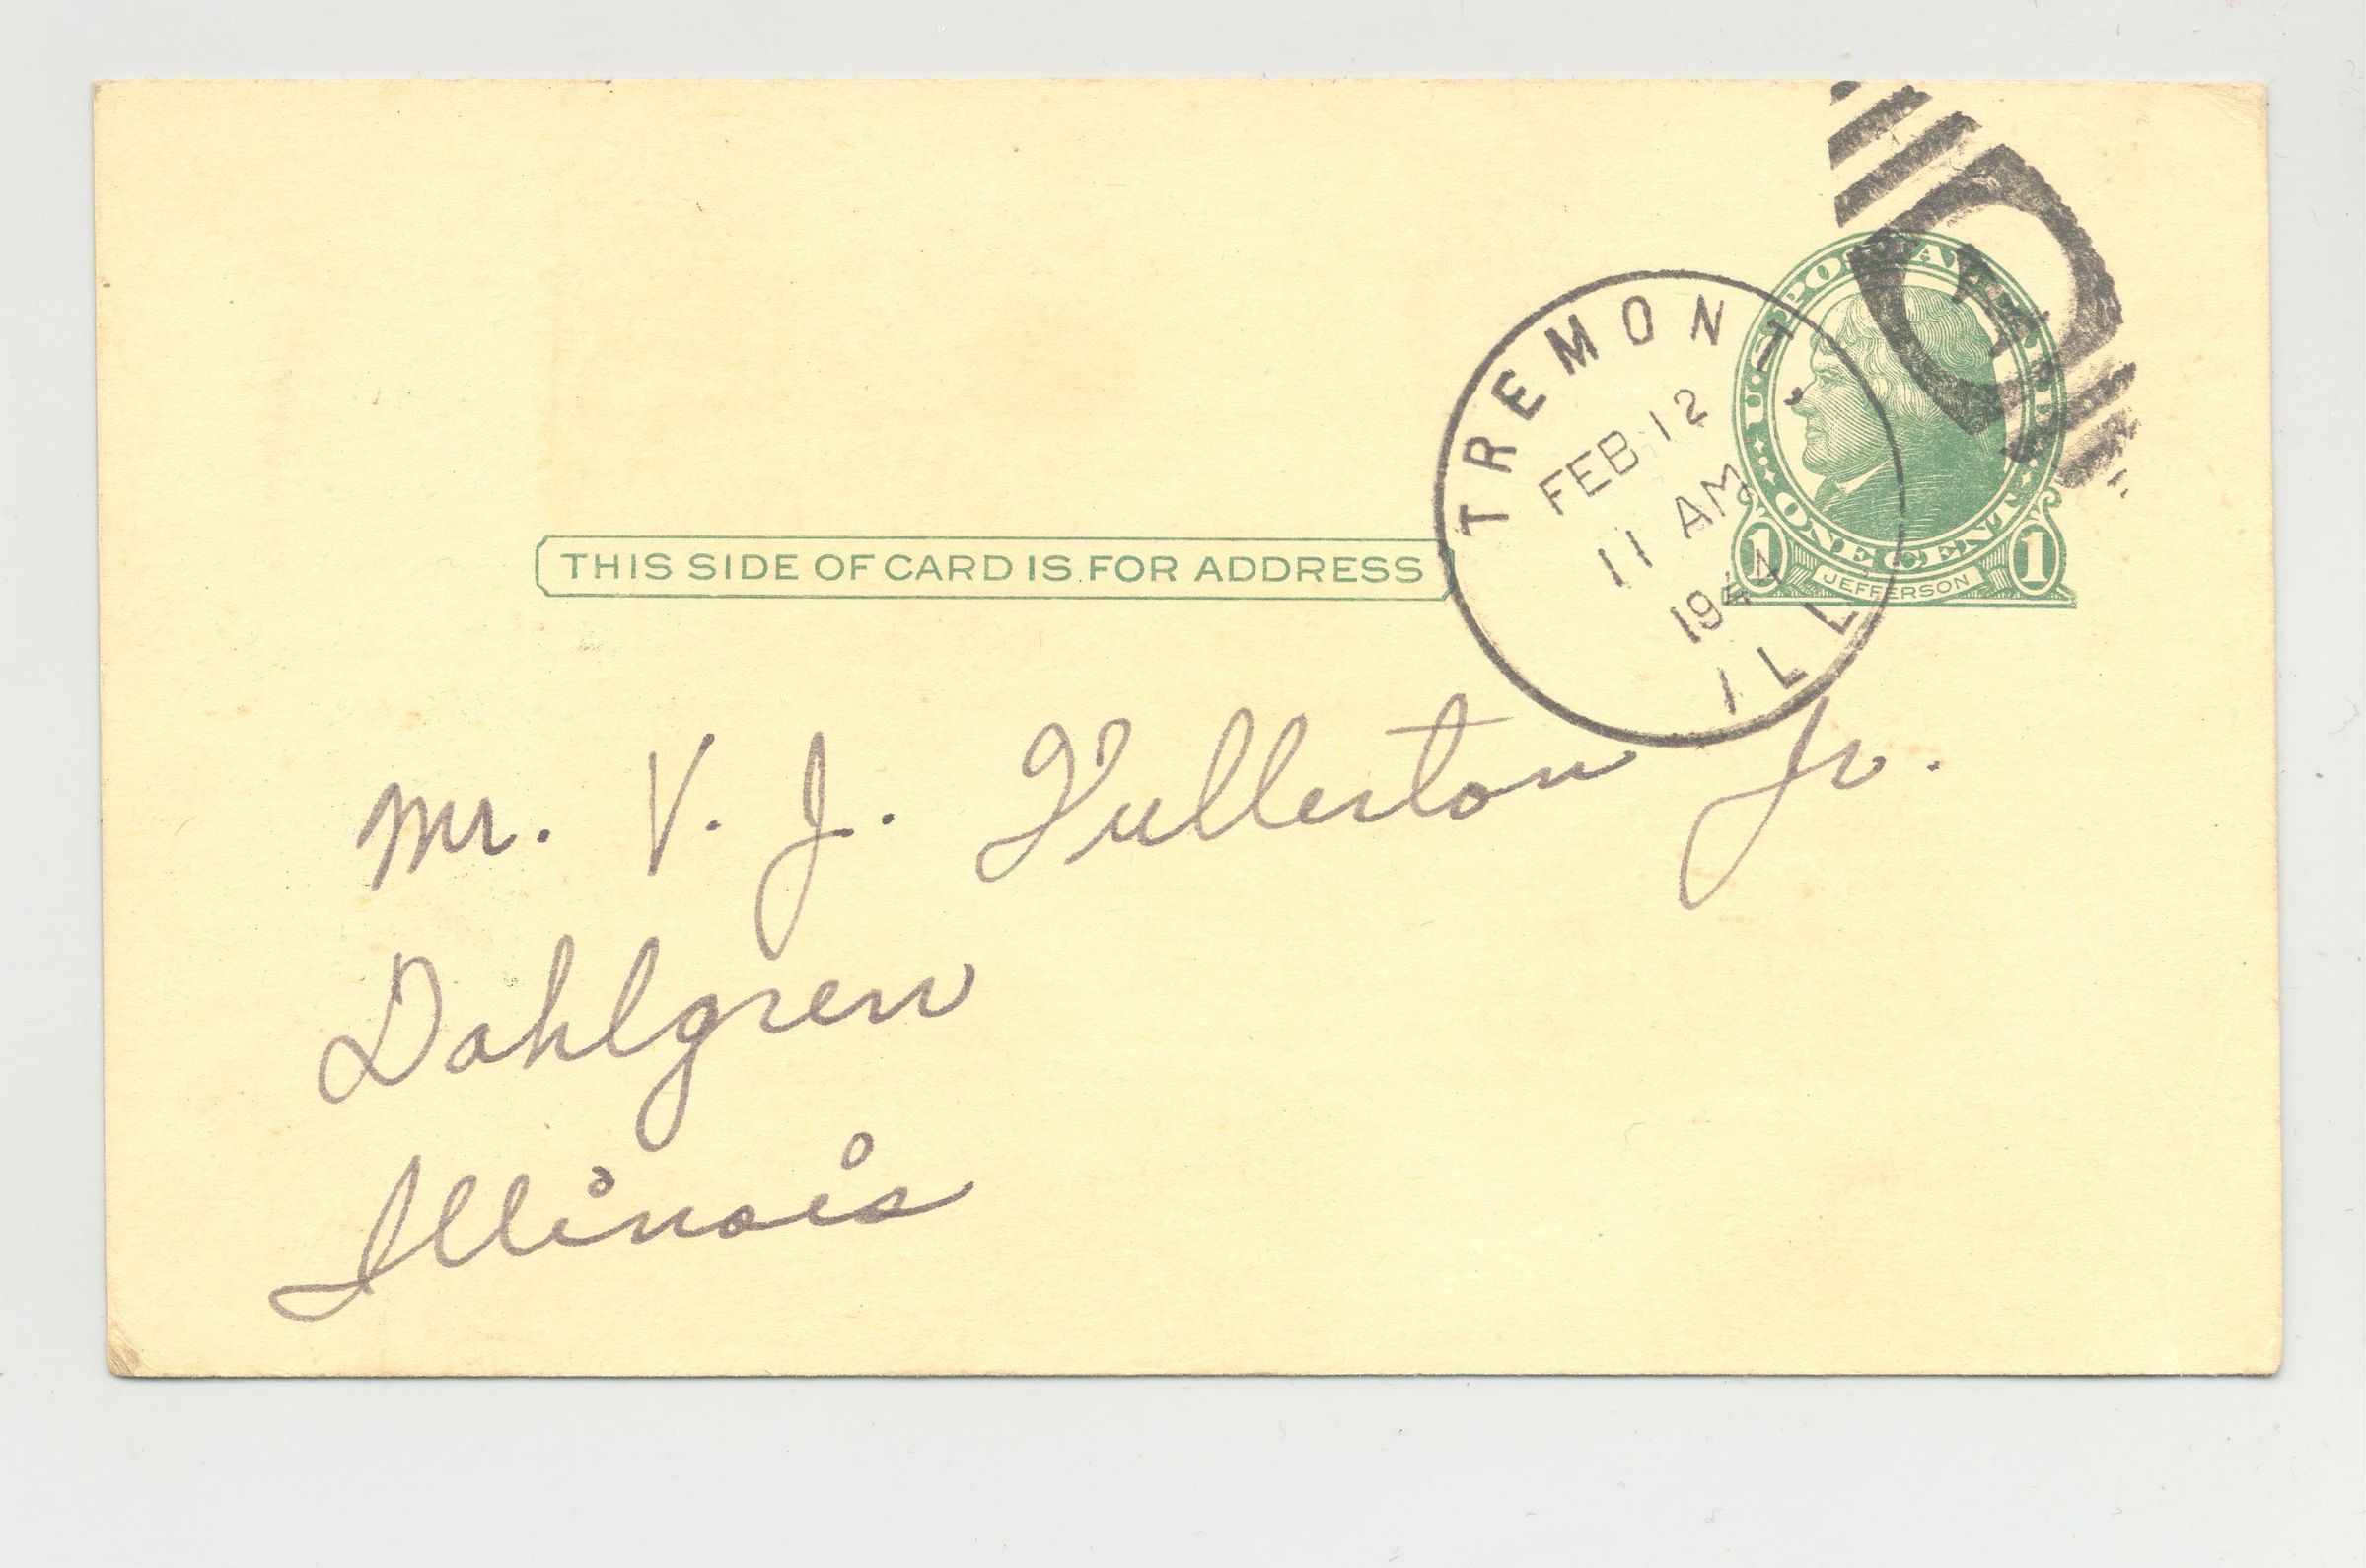 U.S. POSTAGE
TREMONT,
FEB 12
11 AM
1944
ILL.
ONE CENT
1 JEFFERSON 1
THIS SIDE OF CARD IS FOR ADDRESS
Mr. V. J. Fullerton Jr.
Dahlgren
Illinois